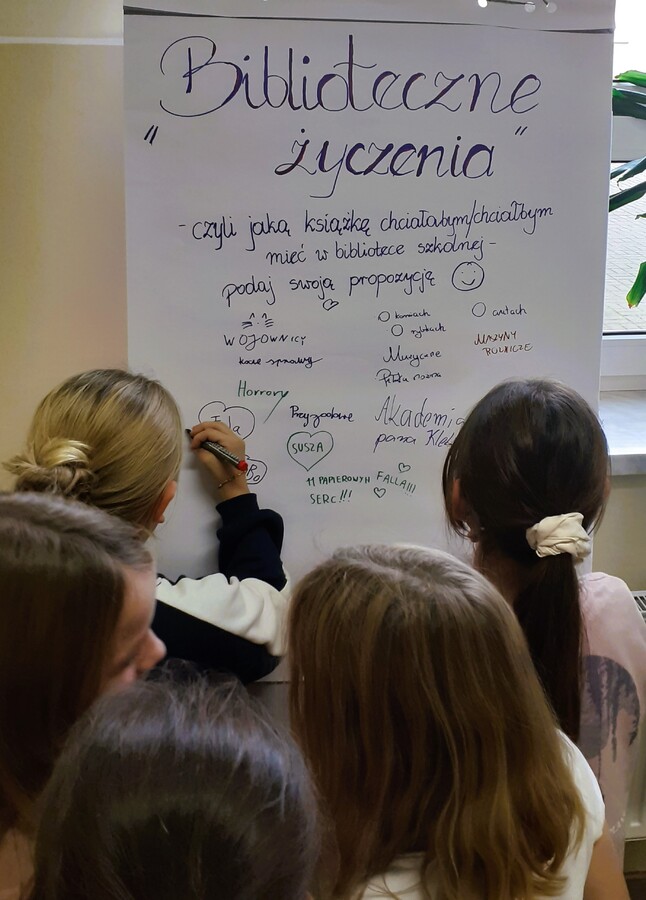 Biblioteczne
" życzenia "
- czyli jaką książkę chciałabym/chciałbym
mieć w bibliotece szkolnej -
podaj swoją propozycję
WOJOWNICY
O koniach
O rybach
O autach
MASZYNY
ROLNICZE
Muzyczne
Piłka nożna
Horrory
Przygodowe
SUSZA
Akademia
pana
11 PAPIEROWYH
SERC!!!
FALLA!!!